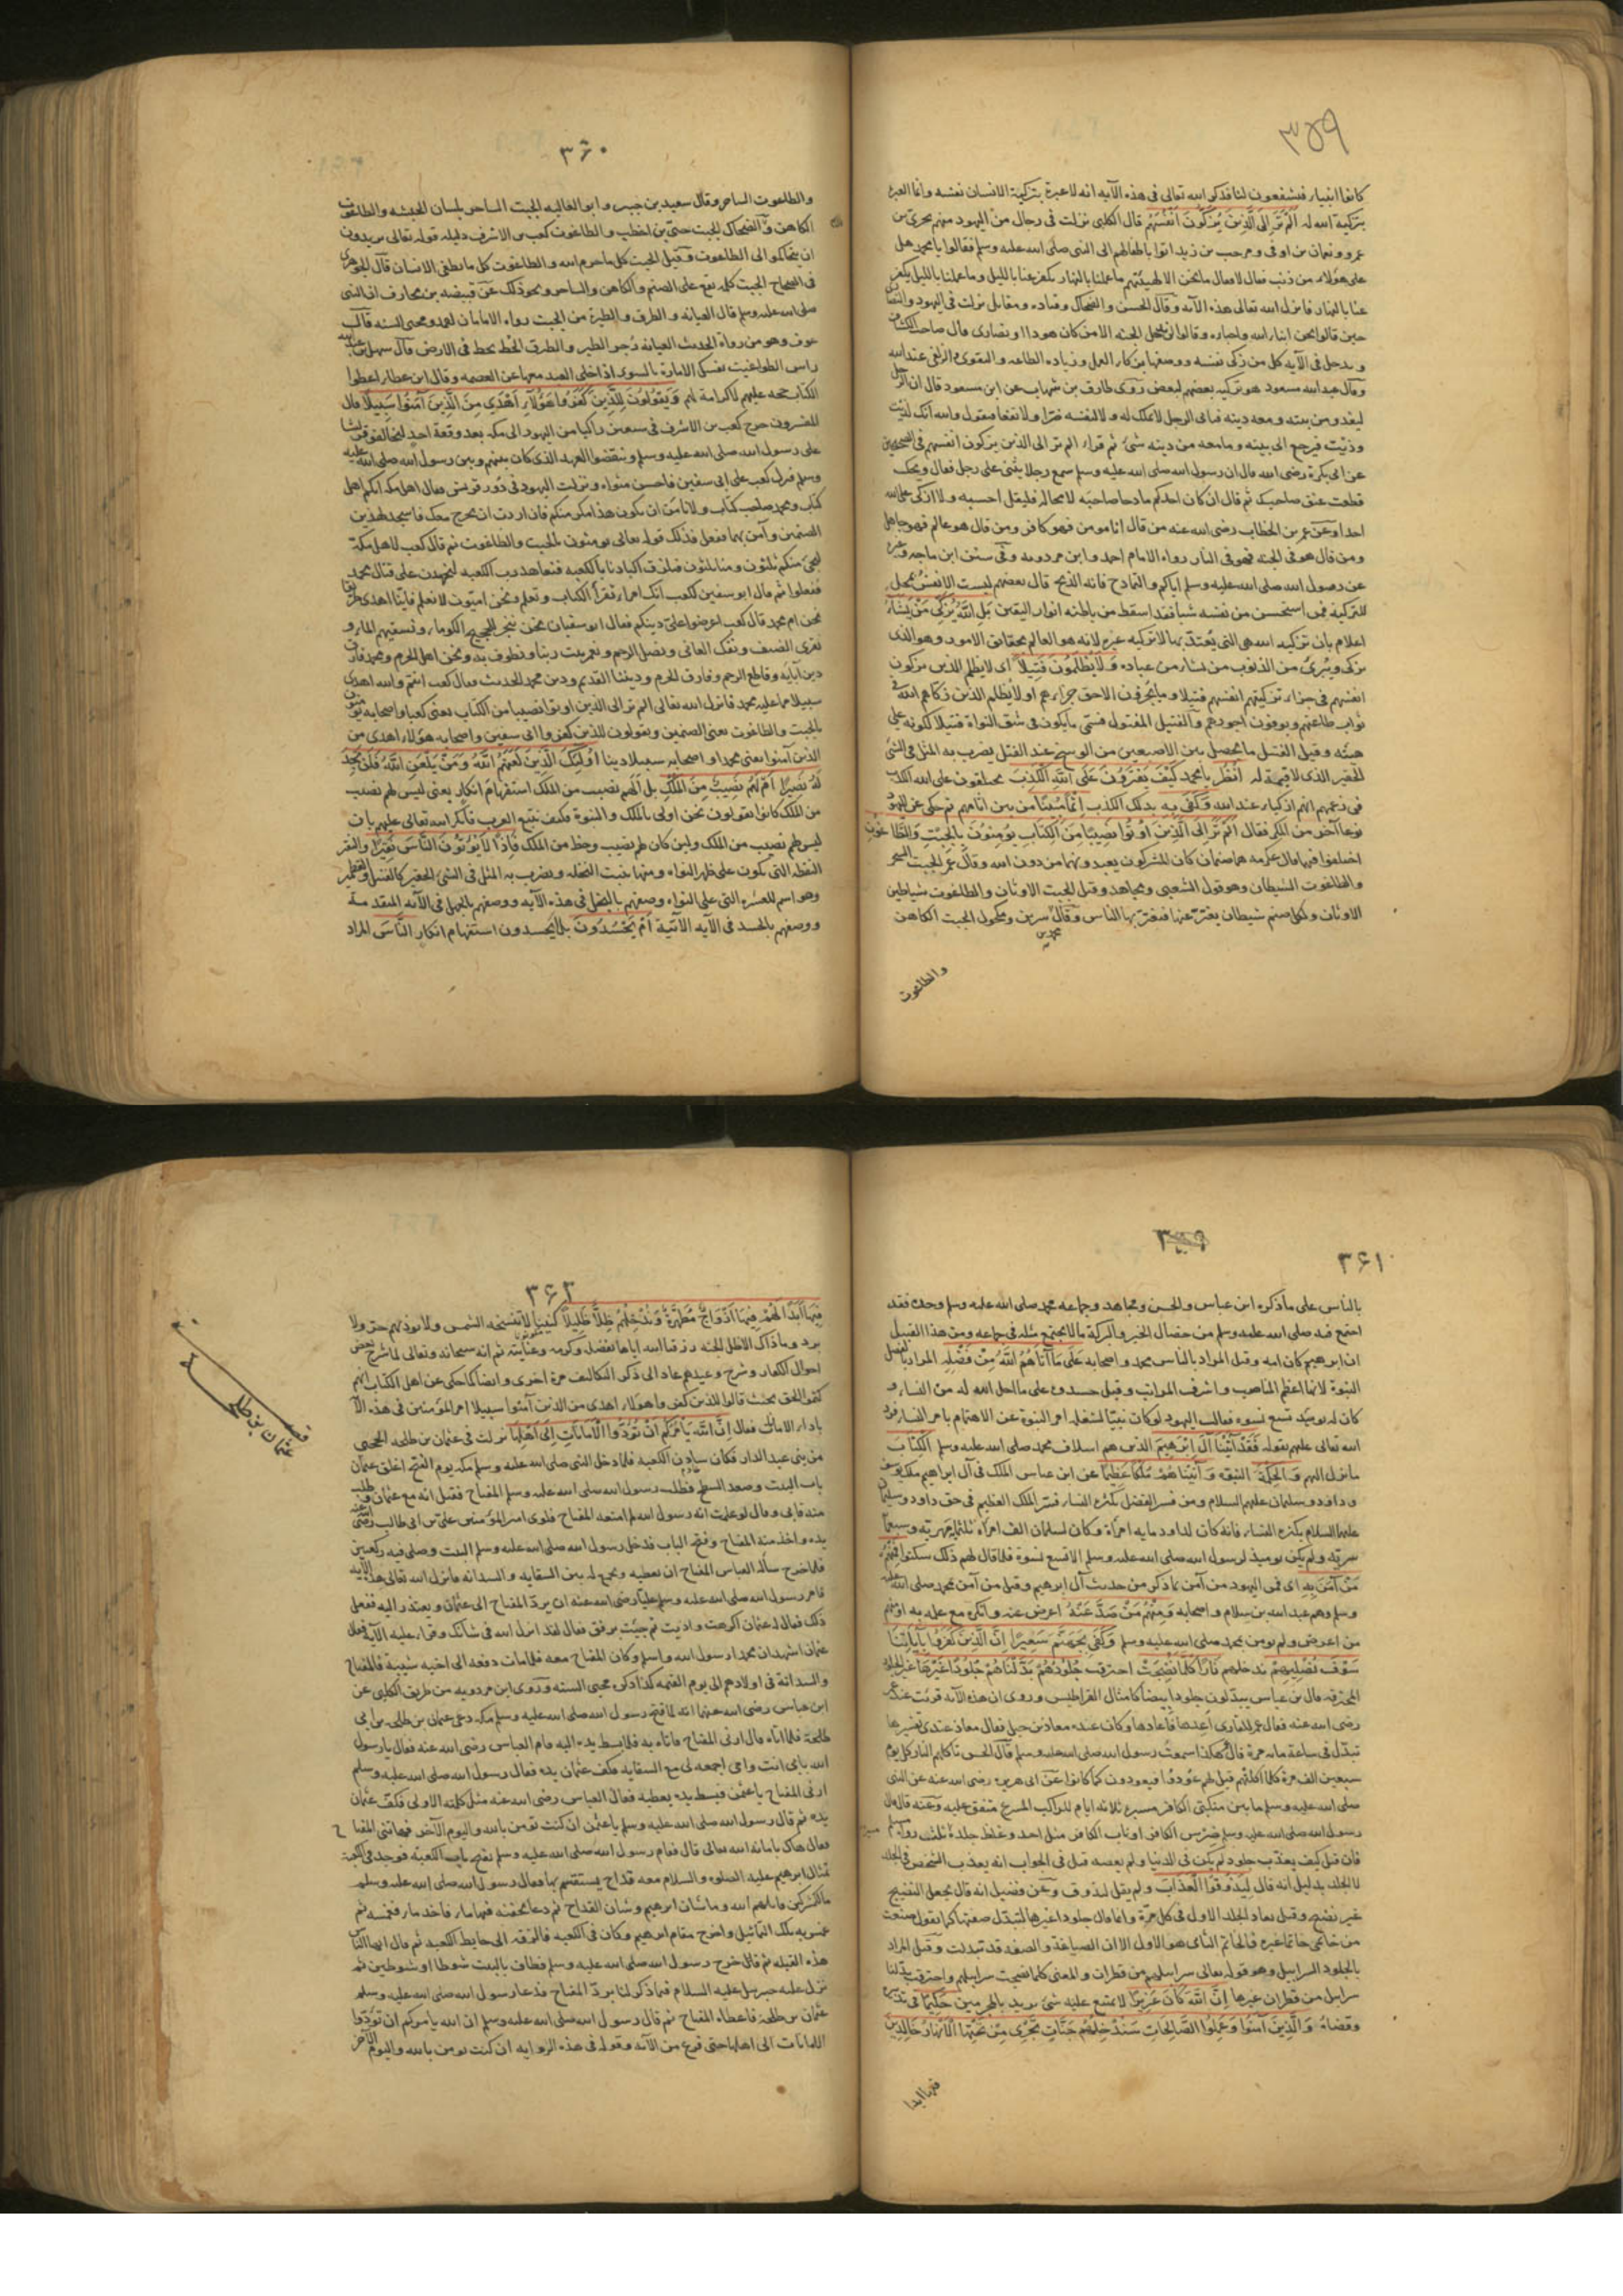 ٣٥٩
كانوا انبياء فيشفعون لنا فذكر الله تعالى فى هذه الآيه انه لا عبرة بتزكية الانسان نفسه وانما العبرة
بتزكية الله له اَلَمْ تَرَ اِلَى الَّذِينَ يُزَكُّونَ اَنْفُسَهُمْ قال الكلبى نزلت فى رجال من اليهود منهم بحرى بن
عمرو ونعمان بن اوفى ومرحب بن زيد اتوا باطفالهم الى النبى صلى الله عليه وسلم فقالوا يا محمد هل
على هؤلاء من ذنب فقال لا فقال ما نحن الا كهيئتهم ما عملنا بالنهار يكفر عنا بالليل وما عملنا بالليل يكفر
عنا بالنهار فانزل الله تعالى هذه الآيه وقال الحسن والضحاك وقتاده ومقاتل نزلت فى اليهود والنصارى
حين قالوا نحن ابناء الله واحباؤه وقالوا لن يدخل الجنه الا من كان هودا او نصارى قال صاحب الكشاف
ويدخل فى الآيه كل من زكى نفسه ووصفها بزكاء العمل وزياده الطاعه والتقوى والزلفى عند الله
وقال عبد الله بن مسعود هو تزكيه بعضهم لبعض روى طارق بن شهاب عن ابن مسعود قال ان الرجل
ليغدو من بيته ومعه دينه فياتى الرجل لا يملك له ولا لنفسه ضرا ولا نفعا فيقول والله انك لذيت
وذيت فيرجع الى بيته وما معه من دينه شئ ثم قراء الم تر الى الذين يزكون انفسهم فى الصحيحين
عن ابى بكرة رضى الله قال ان رسول الله صلى الله عليه وسلم سمع رجلا يثنى على رجل فقال ويحك
قطعت عنق صاحبك ثم قال ان كان احدكم مادحا صاحبه لا محاله فليقل احسبه ولا ازكى على الله
احدا وعن عمر بن الخطاب رضى الله عنه من قال انا مومن فهو كافر ومن قال هو عالم فهو جاهل
ومن قال هو فى الجنه فهو فى النار رواه الامام احمد وابن مردويه وفى سنن ابن ماجه
عن رسول الله صلى الله عليه وسلم اياكم والتمادح فانه الذبح قال بعضهم ليست الانفس بمحل
للتزكية فمن استحسن من نفسه شيا فقد اسقط من باطنه انوار اليقين بَلِ اللهُ يُزَكِّى مَنْ يَشَاءُ
اعلام بان تزكيه الله هى التى يُعتدّ بها لا تزكيه غيره لانه هو العالم بحقائق الامور وهو الذى
يزكى ويُبرئ من الذنوب من يشاء من عباده وَلَا يُظْلَمُونَ فَتِيلًا اى لا يظلم الذين يزكون
انفسهم فى جزاء تزكيتهم انفسهم فتيلا وما يُجزون الا حق جزاءهم او لا يُظلم الذين زكاهم الله فى
ثواب طاعتهم ويوفون اجورهم والفتيل المفتول فسمى ما يكون فى شق النواة فتيلا لكونه على
هيئته وقيل الفتيل ما يحصل بين الاصبعين من الوسخ عند الفتل يضرب به المثل فى الشئ
الحقير الذى لا قيمة له اُنْظُرْ يا محمد كَيْفَ يَفْتَرُونَ عَلَى اللهِ الْكَذِبَ يختلقون على الله الكذب
فى زعمهم انهم ازكياء عند الله وَكَفَى بِهِ بذلك الكذب اِثْمًا مُبِينًا من بين اثامهم ثم حكى عن اليهود
نوعا آخر من المكر فقال اَلَمْ تَرَ اِلَى الَّذِينَ اُوتُوا نَصِيبًا مِنَ الْكِتَابِ يُؤمِنُونَ بِالْجِبْتِ وَالطَّاغُوتِ
اختلفوا فيهما قال عكرمه هما صنمان كان المشركون يعبدونهما من دون الله وقال عمر الجبت السحر
والطاغوت الشيطان وهو قول الشعبى ومجاهد وقيل الجبت الاوثان والطاغوت شياطين
الاوثان ولكل صنم شيطان يعبّر عنها فيغترّ بها الناس وقال سرين ومكحول الجبت الكاهن
محمد بن
والطاغوت
٣٦٠
والطاغوت الساحر وقال سعيد بن جبير وابو العاليه الجبت الساحر بلسان الحبشه والطاغوت
الكاهن وقال الضحاك الجبت حيى بن اخطب والطاغوت كعب بن الاشرف دليله قوله تعالى يريدون
ان يتحاكموا الى الطاغوت وقيل الجبت كل ما حرم الله والطاغوت كل ما يطغى الانسان قال الجوهرى
فى الصحاح الجبت كلمه تقع على الصنم والكاهن والساحر ونحو ذلك عن قبيصه بن مخارق ان النبى
صلى الله عليه وسلم قال العيافه والطرق والطيرة من الجبت رواه الامامان احمد ومحيى السنه قال
عوف وهو من رواة الحديث العيافه زجر الطير والطرق الخط يخط فى الارض قال سهل بن عبد الله
راس الطواغيت نفسك الامارة بالسوء اذا خلى العبد معها عن العصمه وقال ابن عطاء اعطوا
الكتاب حجه عليهم لا كرامة لهم وَيَقُولُونَ لِلَّذِينَ كَفَرُوا هَؤُلَاءِ اَهْدَى مِنَ الَّذِينَ آمَنُوا سَبِيلًا قال
المفسرون خرج كعب بن الاشرف فى سبعين راكبا من اليهود الى مكه بعد وقعة احد ليحالفوا قريشا
على رسول الله صلى الله عليه وسلم وينقضوا العهد الذى كان بينهم وبين رسول الله صلى الله عليه
وسلم فنزل كعب على ابى سفين فاحسن مثواه ونزلت اليهود فى دور قريش فقال اهل مكه انكم اهل
كتاب ومحمد صاحب كتاب ولا نامن ان يكون هذا مكر منكم فان اردت ان نخرج معك فاسجد لهذين
الصنمين وآمن بهما ففعل فذلك قوله تعالى يومنون بالجبت والطاغوت ثم قال كعب لاهل مكة
ليجئ منكم ثلثون ومنا ثلثون فنلزق اكبادنا بالكعبه فنعاهد رب الكعبه لنجهدن على قتال محمد
ففعلوا ثم قال ابو سفين لكعب انك امرء تقرأ الكتاب وتعلم ونحن اميّون لا نعلم فاينا اهدى طريقا
نحن ام محمد قال كعب اعرضوا علىّ دينكم فقال ابو سفيان نحن ننحر للحجيج الكوماء ونسقيهم الماء و
نقرى الضيف ونفك العانى ونصل الرحم ونعمر بيت ربنا ونطوف به ونحن اهل الحرم ومحمد فارق
دين آبايه وقاطع الرحم وفارق الحرم وديننا القديم ودين محمد الحديث فقال كعب انتم والله اهدى
سبيلا مما عليه محمد فانزل الله تعالى الم تر الى الذين اوتوا نصيبا من الكتاب يعنى كعبا واصحابه يؤمنون
بالجبت والطاغوت يعنى الصنمين ويقولون للذين كفروا ابى سفين واصحابه هؤلاء اهدى من
الذين آمنوا يعنى محمدا واصحابه سبيلا دينا اُولَئِكَ الَّذِينَ لَعَنَهُمُ اللهُ وَمَنْ يَلْعَنِ اللهُ فَلَنْ تَجِدَ
لَهُ نَصِيرًا اَمْ لَهُمْ نَصِيبٌ مِنَ الْمُلْكِ بل ألهم نصيب من الملك استفهام انكار يعنى ليس لهم نصيب
من الملك كانوا يقولون نحن اولى بالملك والنبوة فكيف نتبع العرب فانكر الله تعالى عليهم بان
ليس لهم نصيب من الملك ولئن كان لهم نصيب وحظ من الملك فَاِذًا لَا يُؤْتُونَ النَّاسَ نَقِيرًا والنقير
النقطه التى تكون على ظهر النواه ومنها تنبت النخله ويضرب به المثل فى الشئ الحقير كالفتيل والقطمير
وهو اسم للقشره التى على النواه وصفهم بالبخل فى هذه الآيه ووصفهم بالجهل فى الآيه المتقدمة
ووصفهم بالحسد فى الآيه الآتية اَمْ يَحْسُدُونَ بل أيحسدون استفهام انكار النَّاسَ المراد
٣٦١
بالناس على ما ذكره ابن عباس والحسن ومجاهد وجماعه محمد صلى الله عليه وسلم وحده فقد
اجتمع فيه صلى الله عليه وسلم من خصال الخير والبركة ما لا يجتمع مثله فى جماعه ومن هذا القبيل
ان ابرهيم كان امه وقيل المراد بالناس محمد واصحابه عَلَى مَا آتَاهُمُ اللهُ مِنْ فَضْلِهِ المراد بالفضل
النبوة لانها اعظم المناصب واشرف المراتب وقيل حسدوه على ما احل الله له من النساء و
كان له يومئذ تسع نسوه فقالت اليهود لو كان نبيّا لشغله امر النبوة عن الاهتمام بامر النساء فرد
الله تعالى عليهم بقوله فَقَدْ آتَيْنَا آلَ اِبْرَهِيمَ الذين هم اسلاف محمد صلى الله عليه وسلم الْكِتَابَ
ما نزل اليهم وَالْحِكْمَةَ النبوة وَآتَيْنَاهُمْ مُلْكًا عَظِيمًا عن ابن عباس الملك فى آل ابراهيم ملك يوسف
وداود وسليمان عليهم السلام ومن فسر الفضل بكثرة النساء فسّر الملك العظيم فى حق داود وسليمان
عليهما السلام بكثره النساء فانه كان لداود مايه امرأة وكان لسليمان الف امرأه ثلثمايه مهريّه وسبعمايه
سريّه ولم يكن يوميذ لرسول الله صلى الله عليه وسلم الا تسع نسوة فلما قال لهم ذلك سكتوا فَمِنْهُمْ
مَنْ آمَنَ بِهِ اى فمن اليهود من آمن بما ذكر من حديث آل ابرهيم وقيل من آمن بمحمد صلى الله عليه
وسلم وهم عبد الله بن سلام واصحابه وَمِنْهُمْ مَنْ صَدَّ عَنْهُ اعرض عنه وانكره مع علمه به او منهم
من اعرض ولم يومن بمحمد صلى الله عليه وسلم وَكَفَى بِجَهَنَّمَ سَعِيرًا اِنَّ الَّذِينَ كَفَرُوا بِآيَاتِنَا
سَوْفَ نُصْلِيهِمْ ندخلهم نَارًا كُلَّمَا نَضِجَتْ احترقت جُلُودُهُمْ بَدَّلْنَاهُمْ جُلُودًا غَيْرَهَا غير الجلود
المحترقه قال بن عباس يبدّلون جلودا بيضا كامثال القراطيس وروى ان هذه الآيه قرئت عند عمر
رضى الله عنه فقال عمر للقارى اعدها فاعادها وكان عنده معاذ بن جبل فقال معاذ عندى تفسيرها
تبدّل فى ساعة مايه مرة قال عمر هكذا سمعت رسول الله صلى الله عليه وسلم قال الحسن تاكلهم النار كل يوم
سبعين الف مرة كلما اكلتهم قيل لهم عودوا فيعودون كما كانوا عن ابى هريره رضى الله عنه عن النبى
صلى الله عليه وسلم ما بين منكبى الكافر مسيره ثلاثه ايام للراكب المسرع متفق عليه وعنه قال قال
رسول الله صلى الله عليه وسلم ضرس الكافر او ناب الكافر مثل احد وغلظ جلده ثلث رواه مسلم
فان قيل كيف يعذب جلودا لم يكن فى الدنيا ولم يعصه قيل فى الجواب انه يعذب الشخص فى الجلد
لا الجلد بدليل انه قال لِيَذُوقُوا الْعَذَابَ ولم يقل ليذوق وعن فضيل انه قال يجعل النضيج
غير نضيج وقيل يعاد الجلد الاول فى كل مرة وانما قال جلودا غيرها لتبدّل صفتها كما تقول صنعت
من خاتمى خاتما غيره فالخاتم الثانى هو الاول الا ان الصياغة والصفه قد تبدلت وقيل المراد
بالجلود السرابيل وهو قوله تعالى سرابيلهم من قطران والمعنى كلما نضجت سرابيلهم واحترقت بدّلنا
سرابيل من قطران غيرها اِنَّ اللهَ كَانَ عَزِيزًا لا يمتنع عليه شئ يريد بالمجرمين حَكِيمًا فى تدبيره
وقضائه وَالَّذِينَ آمَنُوا وَعَمِلُوا الصَّالِحَاتِ سَنُدْخِلُهُمْ جَنَّاتٍ تَجْرِى مِنْ تَحْتِهَا الْاَنْهَارُ خَالِدِينَ
فيها ابدا
٣٦٢
فِيهَا اَبَدًا لَهُمْ فِيهَا اَزْوَاجٌ مُطَهَّرَةٌ وَنُدْخِلُهُمْ ظِلًّا ظَلِيلًا كنينا لا تنسخه الشمس ولا يوذيهم حر ولا
برد وما ذاك الا ظل الجنه رزقنا الله اياها بفضله وكرمه وعنايته ثم انه سبحانه وتعالى لما شرح بعض
احوال الكفار وشرح وعيدهم عاد الى ذكر التكاليف مرة اخرى وايضا لما حكى عن اهل الكتاب انهم
كتموا الحق بحيث قالوا للذين كفروا هؤلاء اهدى من الذين آمنوا سبيلا امر المؤمنين فى هذه الآ
باداء الامانات فقال اِنَّ اللهَ يَاْمُرُكُمْ اَنْ تُؤَدُّوا الْاَمَانَاتِ اِلَى اَهْلِهَا نزلت فى عثمان بن طلحه الحجبى
من بنى عبد الدار فكان سادن الكعبه فلما دخل النبى صلى الله عليه وسلم مكه يوم الفتح اغلق عثمان
باب البيت وصعد السطح فطلب رسول الله صلى الله عليه وسلم المفتاح فقيل انه مع عثمان فطلب
منه فابى وقال لو علمت انه رسول الله لم امنعه المفتاح فلوى امير المؤمنين على بن ابى طالب رضى الله عنه
يده واخذ منه المفتاح وفتح الباب فدخل رسول الله صلى الله عليه وسلم البيت وصلى فيه ركعتين
فلما خرج سأله العباس المفتاح ان يعطيه ويجمع له بين السقايه والسدانه فانزل الله تعالى هذه الآيه
فامر رسول الله صلى الله عليه وسلم عليّا رضى الله عنه ان يردّ المفتاح الى عثمان ويعتذر اليه ففعل
ذلك فقال له عثمان اكرهت واذيت ثم جئت برفق فقال لقد انزل الله فى شانك وقراء عليه الآيه فقال
عثمان اشهد ان محمدا رسول الله واسلم وكان المفتاح معه فلما مات دفعه الى اخيه شيبة فالمفتاح
والسدانة فى اولادهم الى يوم القيمه كذا ذكره محيى السنه وروى ابن مردويه من طريق الكلبى عن
ابن عباس رضى الله عنهما انه لما فتح رسول الله صلى الله عليه وسلم مكه دعى عثمان بن طلحه بن ابى
طلحة فلما اتاه قال ارنى المفتاح فاتاه به فلما بسط يده اليه قام العباس رضى الله عنه فقال يا رسول
الله بابى انت وامى اجمعه لى مع السقايه فكف عثمان يده فقال رسول الله صلى الله عليه وسلم
ارنى المفتاح يا عثمن فبسط يده يعطيه فقال العباس رضى الله عنه مثل كلمته الاولى فكفّ عثمان
يده ثم قال رسول الله صلى الله عليه وسلم يا عثمن ان كنت تومن بالله واليوم الآخر فهاتنى المفتاح
فقال هاك بامانه الله تعالى قال فقام رسول الله صلى الله عليه وسلم ففتح باب الكعبه فوجد فى الكعبة
تمثال ابرهيم عليه الصلوه والسلام معه قداح يستقسم بها فقال رسول الله صلى الله عليه وسلم
ما للمشركين قاتلهم الله وما شان ابرهيم وشان القداح ثم دعا بجفنه فيها ماء فاخذ ماء فغمسه ثم
غمس به تلك التماثيل واخرج مقام ابرهيم وكان فى الكعبه فالزقه الى حايط الكعبه ثم قال ايها الناس
هذه القبله ثم قال خرج رسول الله صلى الله عليه وسلم فطاف بالبيت شوطا او شوطين ثم
نزل عليه جبريل عليه السلام فيما ذكر لنا برد المفتاح فدعا رسول الله صلى الله عليه وسلم
عثمان بن طلحة فاعطاه المفتاح ثم قال رسول الله صلى الله عليه وسلم ان الله يامركم ان تؤدّوا
الامانات الى اهلها حتى فرغ من الآيه وقوله فى هذه الروايه ان كنت تومن بالله واليوم الآخر
قصه
عثمان بن طلحه